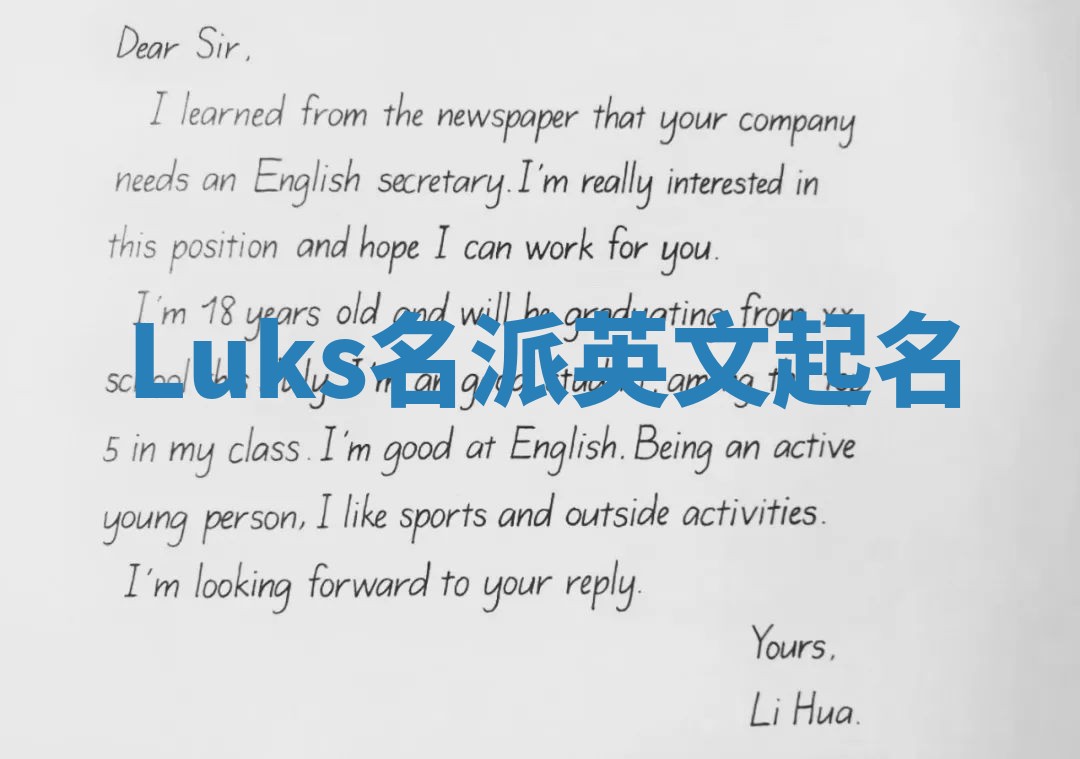 Dear Sir,
I learned from the newspaper that your company
needs an English secretary. I'm really interested in
this position and hope I can work for you.
I'm 18 years old and will be graduating from xx
Luks名派英文起名
school this July. I'm an good student, among the top
5 in my class. I'm good at English. Being an active
young person, I like sports and outside activities.
I'm looking forward to your reply.
Yours,
Li Hua.